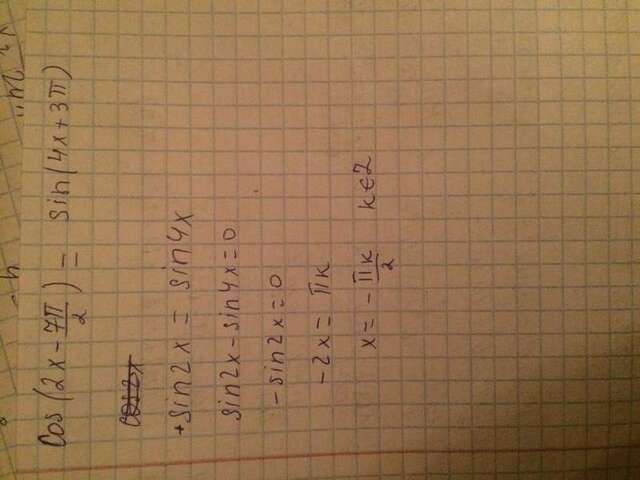 cos(2x - 7π/2) = sin(4x + 3π)
+sin2x = sin4x
sin2x - sin4x = 0
-sin2x = 0
-2x = πк
x = -πк/2 к∈Z